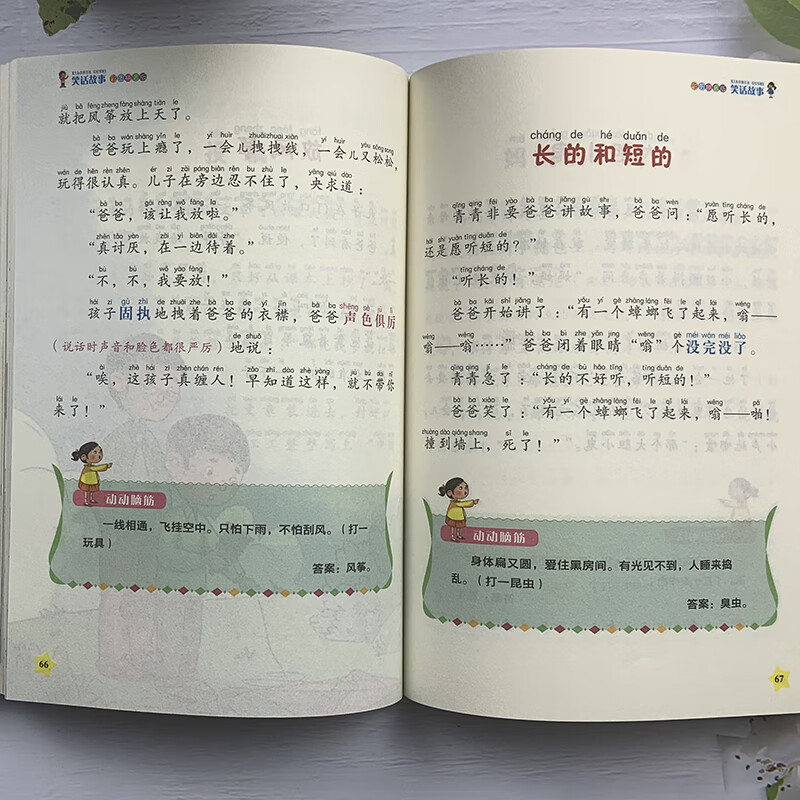 XIAOHUA GUSHI
笑话故事
jiù bǎ fēng zheng fàng shàng tiān le
就把风筝放上天了。
bà ba wán shàng yǐn le yí huìr zhuāi zhuai xiàn yí huìr yòu sōng song
爸爸玩上瘾了，一会儿拽拽线，一会儿又松松，
wán de hěn rèn zhēn ér zi zài páng biān rěn bú zhù le yāng qiú dào
玩得很认真。儿子在旁边忍不住了，央求道：
bà ba gāi ràng wǒ fàng la
“爸爸，该让我放啦。”
zhēn tǎo yàn zài yì biān dāi zhe
“真讨厌，在一边待着。”
bù bù wǒ yào fàng
“不，不，我要放！”
hái zi gù zhí de zhuāi zhe bà ba de yī jīn bà ba shēng sè jù lì
孩子固执地拽着爸爸的衣襟，爸爸声色俱厉
de shuō
（说话时声音和脸色都很严厉）地说：
ài zhè hái zi zhēn chán rén zǎo zhī dào zhè yàng jiù bú dài nǐ
“唉，这孩子真缠人！早知道这样，就不带你
lái le
来了！”
动动脑筋
一线相通，飞挂空中。只怕下雨，不怕刮风。（打一
玩具）
答案：风筝。
66
XIAOHUA GUSHI
笑话故事
cháng de hé duǎn de
长的和短的
qīng qing fēi yào bà ba jiǎng gù shi bà ba wèn yuàn tīng cháng de
青青非要爸爸讲故事，爸爸问：“愿听长的，
hái shi yuàn tīng duǎn de
还是愿听短的？”
tīng cháng de
“听长的！”
bà ba kāi shǐ jiǎng le yǒu yí gè zhāng láng fēi le qǐ lái wēng
爸爸开始讲了：“有一个蟑螂飞了起来，嗡——
wēng wēng bà ba bì zhe yǎn jing wēng gè méi wán méi liǎo
嗡——嗡……”爸爸闭着眼睛“嗡”个没完没了。
qīng qing jí le cháng de bù hǎo tīng tīng duǎn de
青青急了：“长的不好听，听短的！”
bà ba xiào le yǒu yí gè zhāng láng fēi le qǐ lái wēng pā
爸爸笑了：“有一个蟑螂飞了起来，嗡——啪！
zhuàng dào qiáng shang sǐ le
撞到墙上，死了！”
动动脑筋
身体扁又圆，爱住黑房间。有光见不到，人睡来捣
乱。（打一昆虫）
答案：臭虫。
67